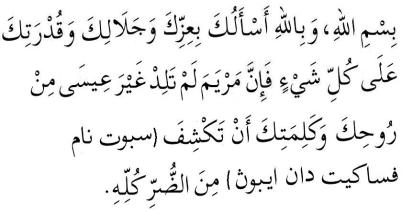 بِسْمِ اللهِ، وَبِاللهِ أَسْأَلُكَ بِعِزِّكَ وَجَلَالِكَ وَقُدْرَتِكَ
عَلَى كُلِّ شَيْءٍ فَإِنَّ مَرْيَمَ لَمْ تَلِدْ غَيْرَ عِيسَى مِنْ
رُوحِكَ وَكَلِمَتِكَ أَنْ تَكْشِفَ (سبوت نام
فساكيت دان ايبوڽ) مِنَ الضُّرِّ كُلِّهِ.